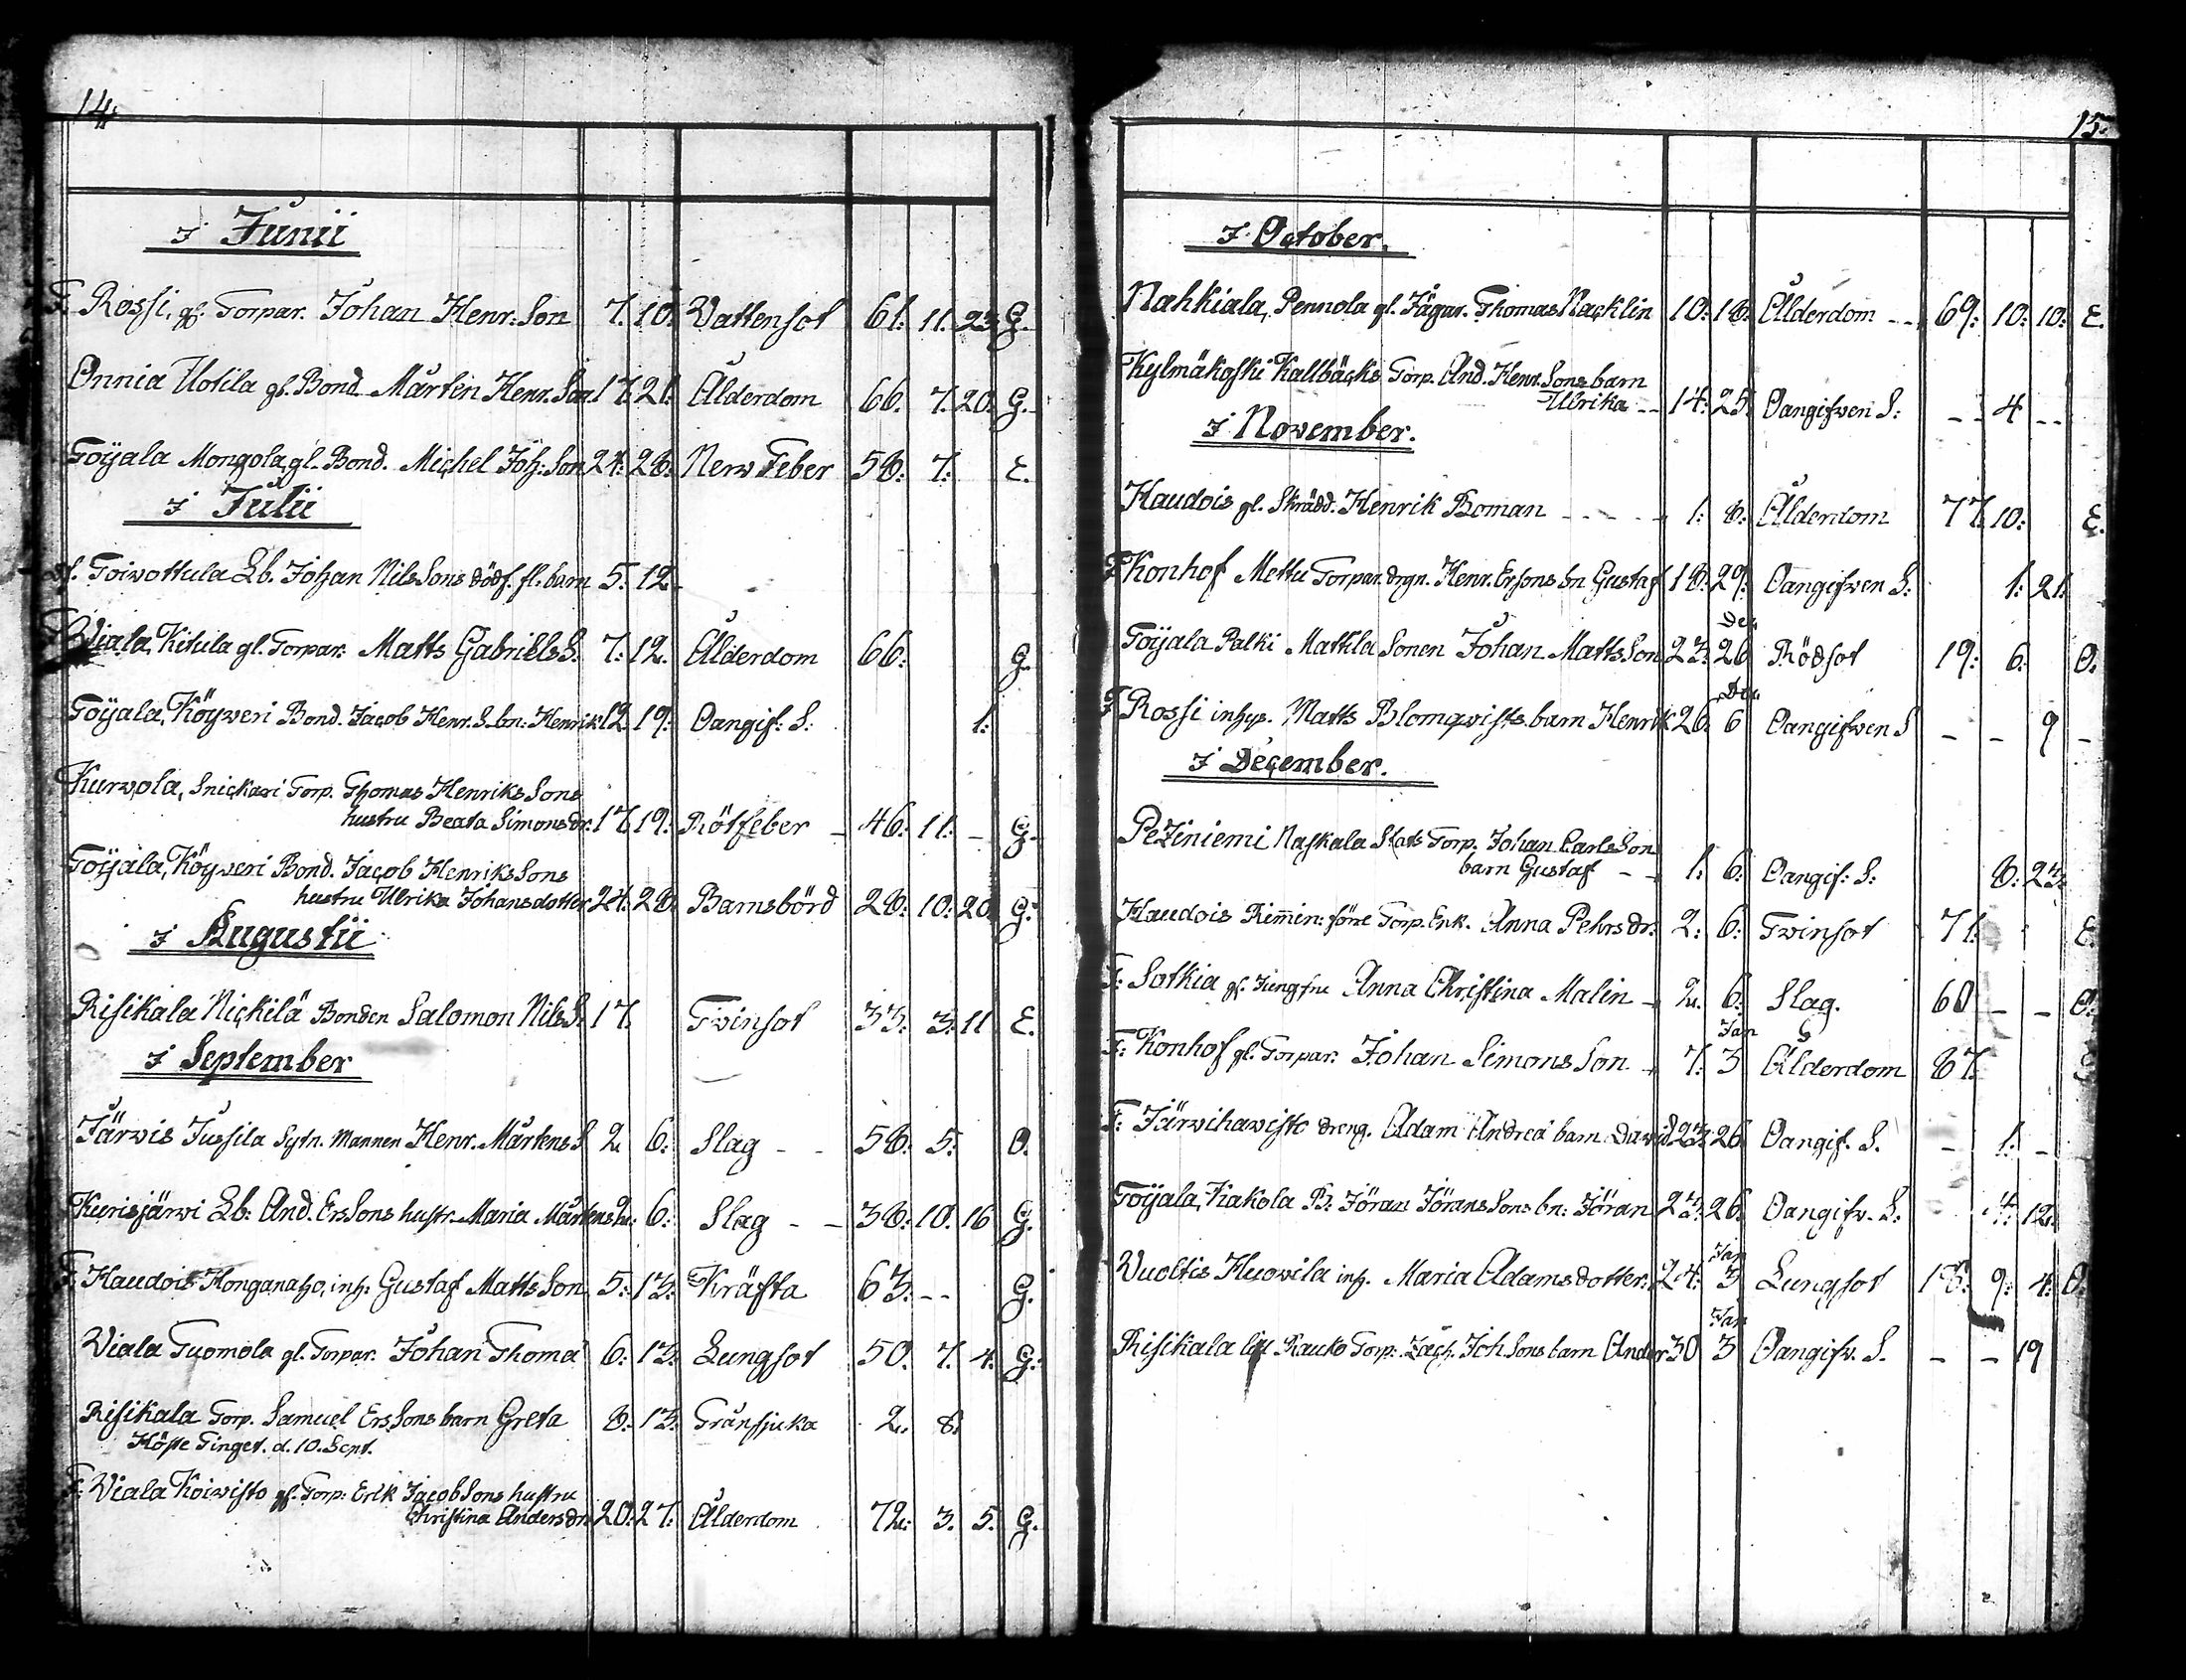 14.
I Junii
F. Rossi, gl. Torpar. Johan Henr: Son 7. 10. Wattensot 61. 11. 23. G.
Onnia Uotila gl. Bond. Mårten Henr. Son. 17. 21. Ålderdom 66. 7. 20. G.
Toijala Mongola, gl. Bond. Michel Joh: Son 24. 28. Nerw Feber 58: 7: E.
I Julii
df. Toivottula Lb. Johan Nils Sons dödf. fl. barn 5. 12.
Viala, Kitula gl. Torpar. Matts Gabriels S. 7: 12. Ålderdom 66: G.
Toijala, Köyweri Bond. Jacob Henr. S. bn: Henrik 12. 19: Oangif: S: 1:
Kurvola, Snickari Torp. Thomas Henriks Sons
hustru Beata Simonsdr. 17. 19: Rötfeber 46: 11: - G.
Toijala, Köyweri Bond. Jacob Henriks Sons
hustru Ulrika Johansdotter 24. 28. Barnsbörd 28: 10: 20. G.
I Augustii
Risikala Nickilä Bonden Salomon Nils S. 17. Twinsot 33: 3: 11 E.
I September
Järvis Jussila Sytn. Mannen Henr. Mårtens S 2. 6: Slag - - 58: 5: O.
Kurisjärwi Lb: And. Ers Sons hustr. Maria Mårtens 2: 6: Slag - - 38: 10. 16 G.
F. Haudois Honganaho, inh. Gustaf Matts Son 5: 13: Kräfta 63. - - G.
Viala Tuomola gl. Torpar. Johan Thoma 6: 13: Lungsot 50. 7. 4. G.
Risikala Torp. Samuel Ers Sons barn Greta 8: 13: Trånsjuka 2. 8.
Höste Tinget. d. 10. Sept.
F. Viala Koiwisto gl. Torp: Erik Jacob Sons hustru
Christina Andersdr. 20: 27: Ålderdom 72: 3. 5. G.
15.
I October.
Nahkiala, Pennola gl. Jägar. Thomas Nacklin 10: 18: Ålderdom - - 69: 10: 10: E.
Kylmäkoski Kallbäcks Torp. And. Henr. Sons barn
Ulrika - - 14: 25. Oangifwen S: - - 4 - -
I November.
Haudois gl. Skrädd. Henrik Boman - - - - 1: 8: Ålderdom 77. 10: E.
F Konhof Mettu Torpar. drgn. Henr. Ersons bn Gustaf 18: 29: Oangifwen S: 1: 21.
Dec
Toijala Palki Mattila Sonen Johan Matts Son 23: 26 Rödsot 19: 6: O.
Dec
F Rossi inhys. Matts Blomqvists barn Henrik 26. 6 Oangifwen S - - 9 -
I December.
Peziniemi Naskala Stats Torp. Johan Carls Son
barn Gustaf - - 1: 6: Oangif: S: 8: 23:
Haudois Rimin: före Torp. Enk. Anna Pehrsdr. 2: 6: Twinsot 71: E.
F: Sotkia gl. Jungfru Anna Christina Malin - 2. 6: Slag. 60 - - O.
Jan
F: Konhof gl. Torpar. Johan Simons Son - 7: 3 Ålderdom 87.
F: Järvihawisto dreng. Adam Andreæ barn David 23: 26. Oangif. S. - 1: -
Toijala, Kakola B: Jöran Jörans Sons bn: Jöran 23: 26. Oangifv. S: 4: 12.
Jan
Vuoltis Huovila inh. Maria Adamsdotter. 24: 3 Lungsot 18: 9: 4: O.
Jan
Risikala Rauko Torp. Zach. Joh Sons barn Ander 30 3 Oangifv. S. - - 19